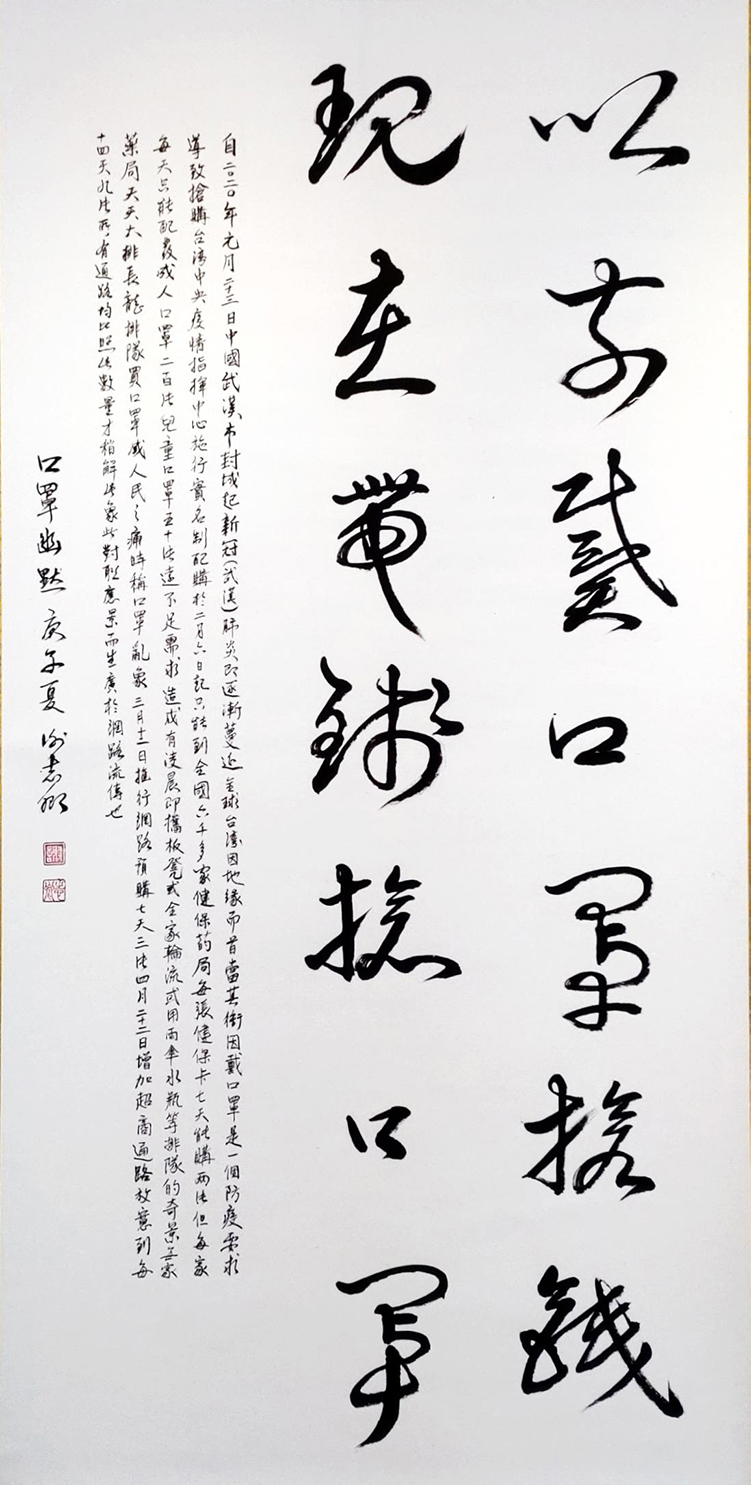 以前戴口罩搶錢
現在帶錢搶口罩
自二〇二〇年元月二十三日中國武漢市封城起新冠(武漢)肺炎即逐漸蔓延全球台灣因地緣而首當其衝因戴口罩是一個防疫要求
導致搶購台灣中央疫情指揮中心施行實名制配購於二月六日起只能到全國六千多家健保葯局每張健保卡七天能購兩片但每家
每天只能配發成人口罩二百片兒童口罩五十片遠不足需求造成有淩晨即攜板凳或全家輪流或用雨傘水瓶等排隊的奇景每家
藥局天天大排長龍排隊買口罩成人民之痛時稱口罩亂象三月十二日推行網路預購七天三片四月二十二日增加超商通路放寬到每
十四天九片所有通路均比照此數量才稍解此象此對聯應景而生廣於網路流傳也
口罩幽默 庚子夏 謝志